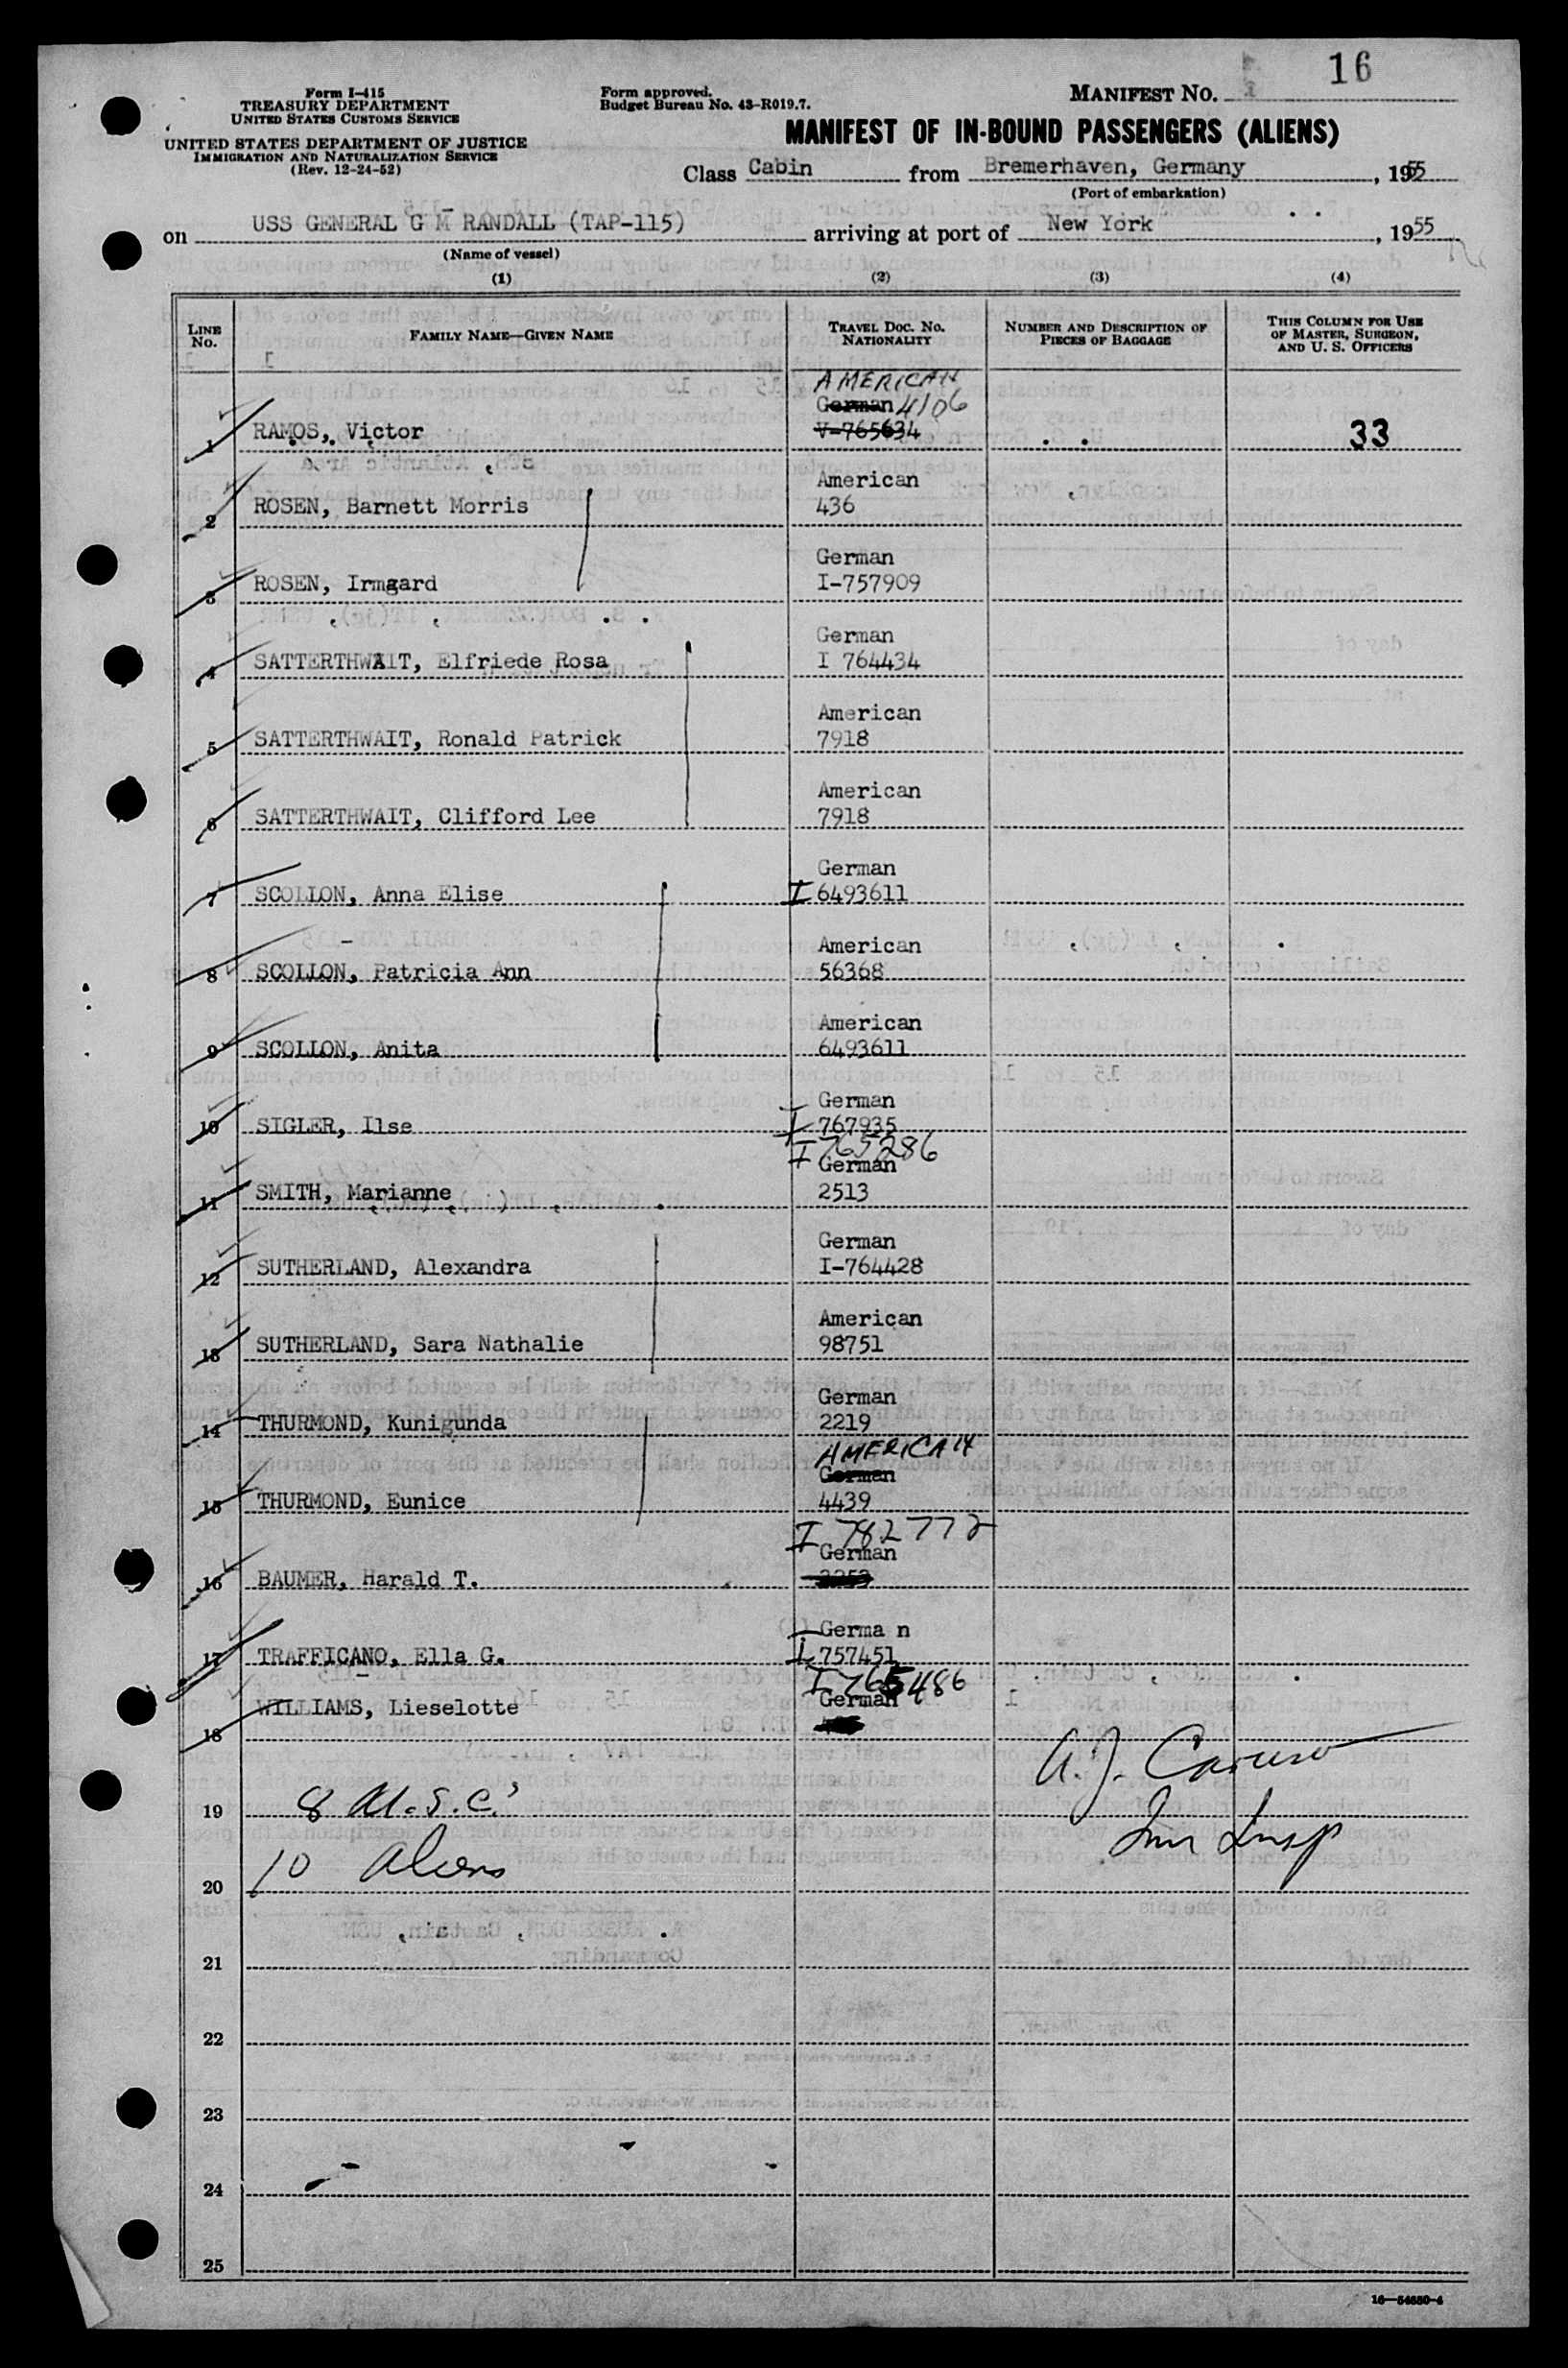 16
Form I-415
TREASURY DEPARTMENT
UNITED STATES CUSTOMS SERVICE
UNITED STATES DEPARTMENT OF JUSTICE
IMMIGRATION AND NATURALIZATION SERVICE
(Rev. 12-24-52)
Form approved.
Budget Bureau No. 43-R019.7.
MANIFEST NO.
MANIFEST OF IN-BOUND PASSENGERS (ALIENS)
Class Cabin from Bremerhaven, Germany, 1955
(Port of embarkation)
on USS GENERAL G M RANDALL (TAP-115) arriving at port of New York, 1955
(Name of vessel)
(1) (2) (3) (4)
LINE No. FAMILY NAME—GIVEN NAME TRAVEL DOC. NO. NATIONALITY NUMBER AND DESCRIPTION OF PIECES OF BAGGAGE THIS COLUMN FOR USE OF MASTER, SURGEON, AND U. S. OFFICERS
AMERICAN
German 4106
1 RAMOS, Victor V-765634 33
American
2 ROSEN, Barnett Morris 436
German
3 ROSEN, Irmgard I-757909
German
4 SATTERTHWAIT, Elfriede Rosa I 764434
American
5 SATTERTHWAIT, Ronald Patrick 7918
American
6 SATTERTHWAIT, Clifford Lee 7918
German
7 SCOLLON, Anna Elise I 6493611
American
8 SCOLLON, Patricia Ann 56368
American
9 SCOLLON, Anita 6493611
German
10 SIGLER, Ilse I 767935
I 765286
German
11 SMITH, Marianne 2513
German
12 SUTHERLAND, Alexandra I-764428
American
13 SUTHERLAND, Sara Nathalie 98751
German
14 THURMOND, Kunigunda 2219
AMERICAN
German
15 THURMOND, Eunice 4439
I 782772
German
16 BAUMER, Harald T.
Germa n
17 TRAFFICANO, Ella G. I 757451
I 765486
German
18 WILLIAMS, Lieselotte
A. J. Caruso
19 8 U.S.C.'
Imm Insp
20 10 Aliens
21
22
23
24
25
16—54680-4